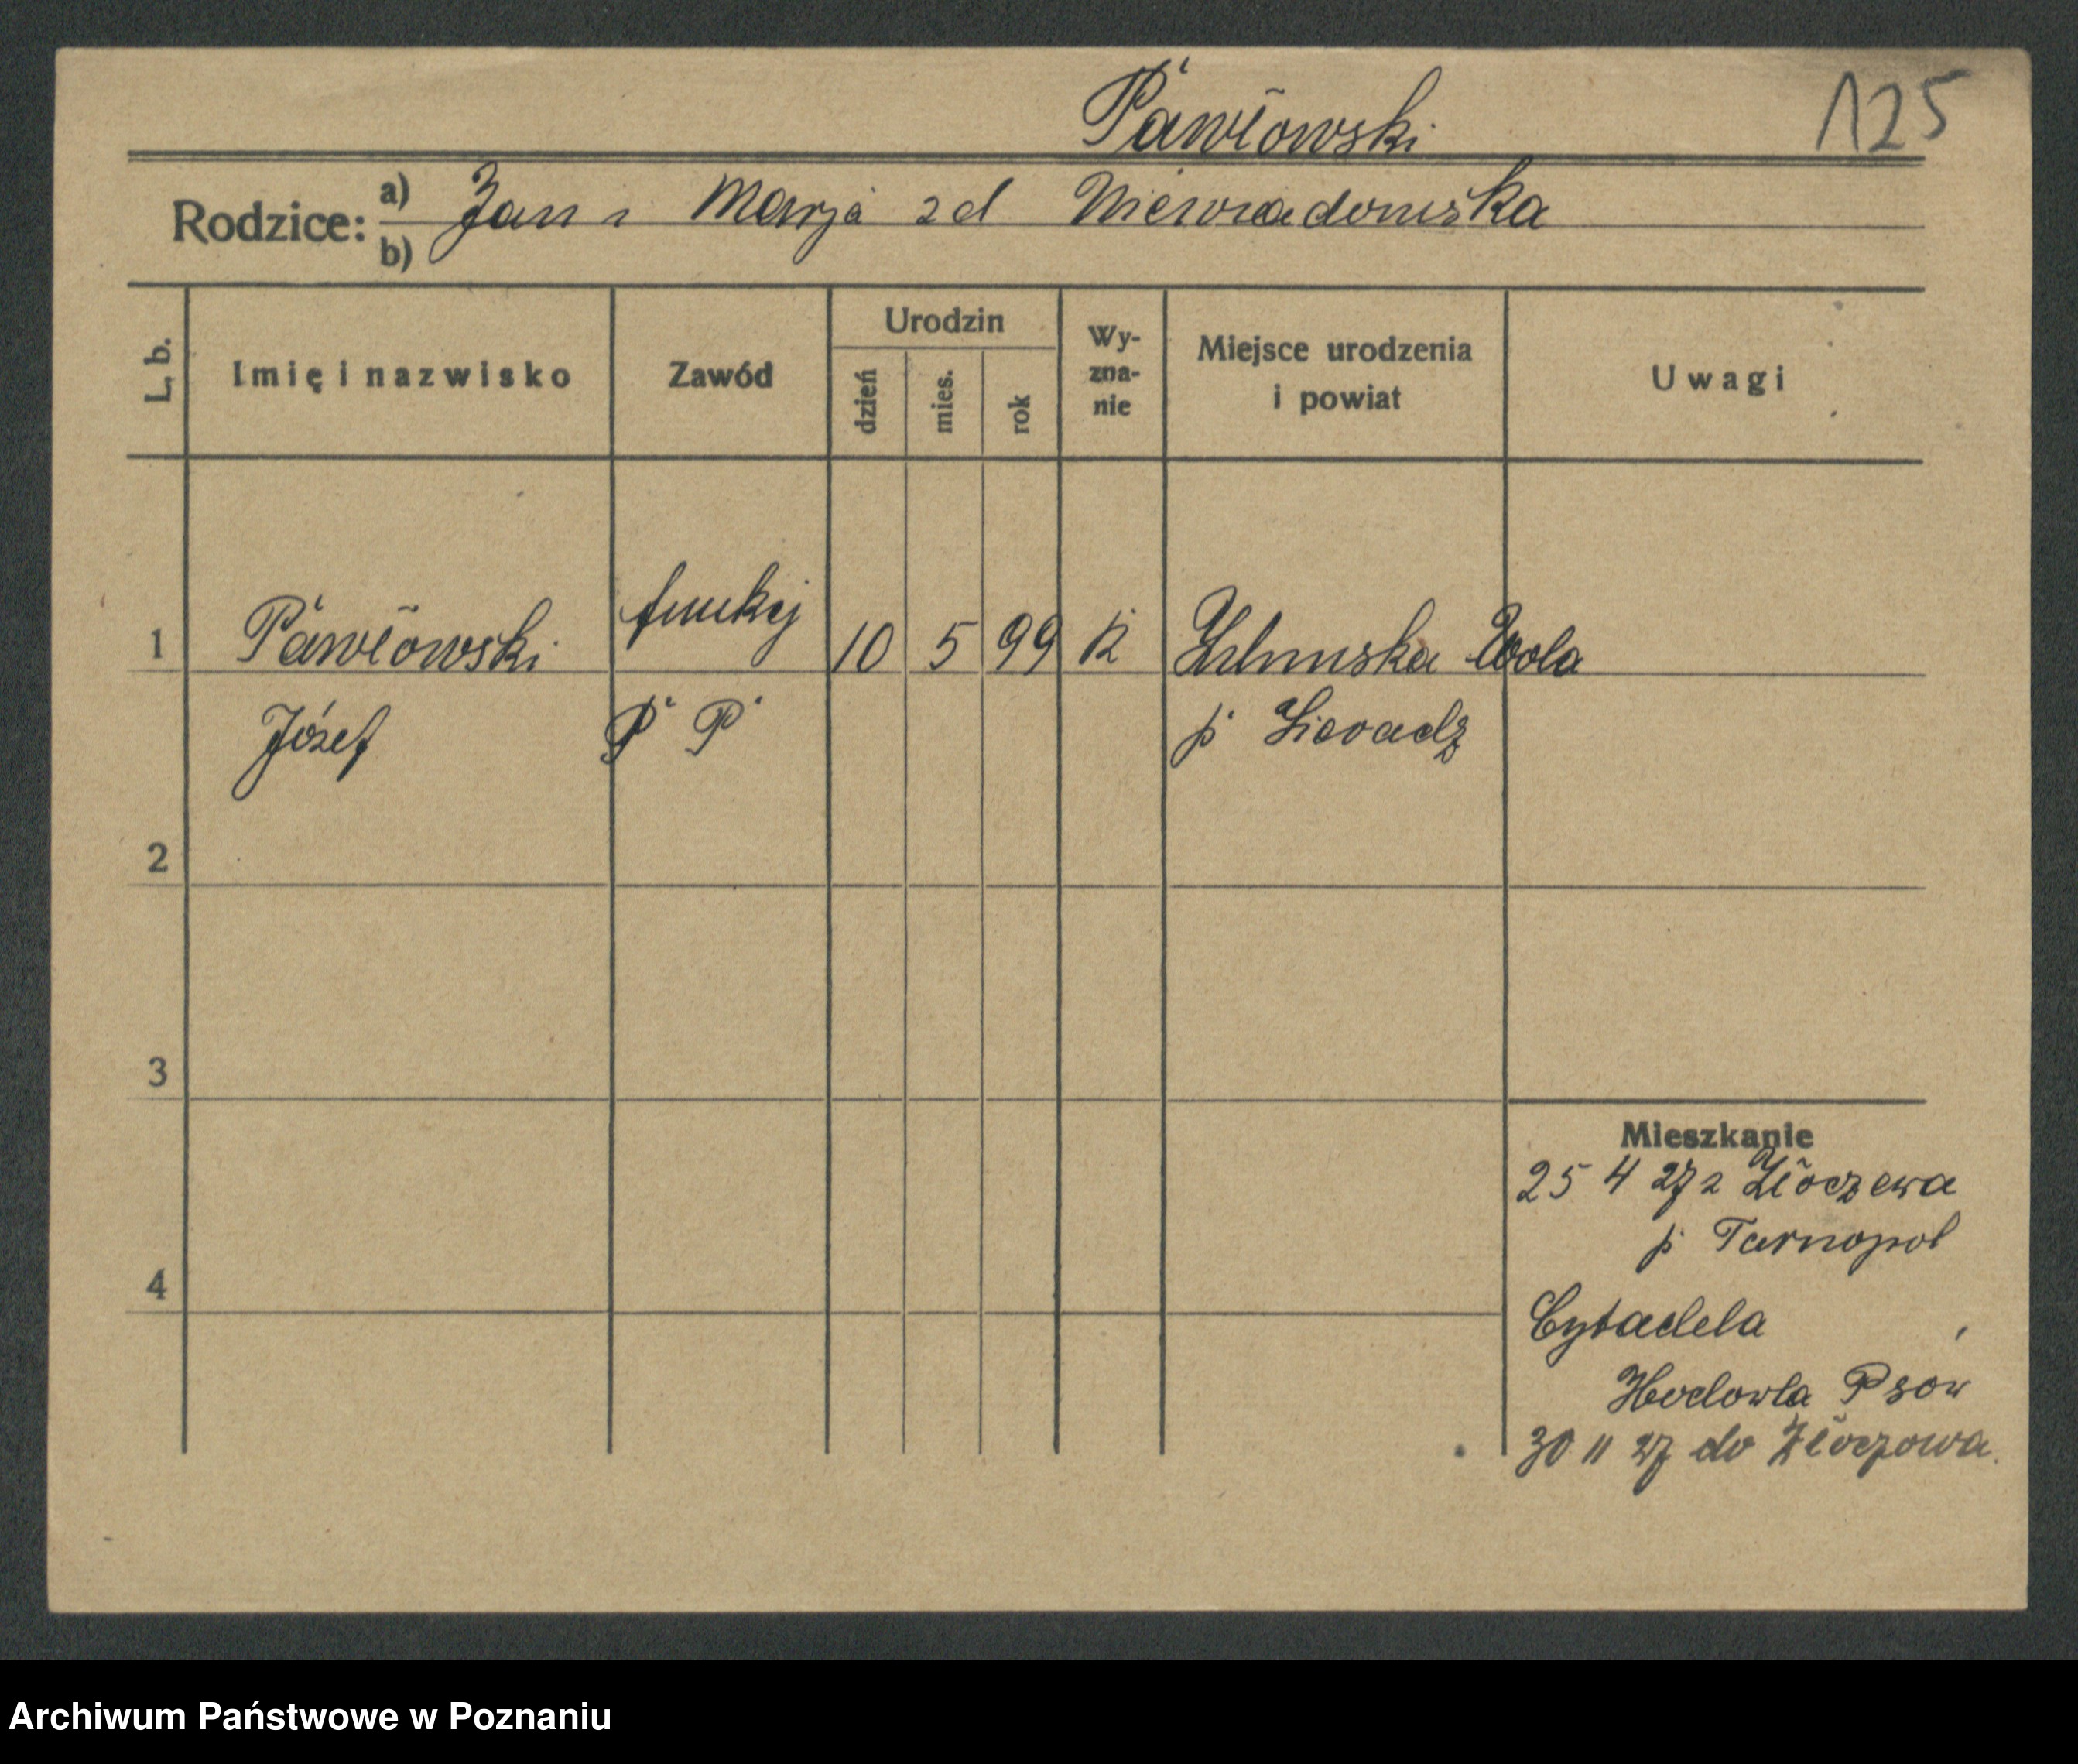 Pawłowski 125
Rodzice: a) Jan i Marja zd Niewiadomska
b)
L. b. Imię i nazwisko Zawód Urodzin dzień mies. rok Wy-zna-nie Miejsce urodzenia i powiat Uwagi
1 Pawłowski funkcj 10 5 99 K Zduńska Wola
Józef P P p Sieradz
2
3
Mieszkanie
25 4 27 z Złoczewa
p Tarnopol
4
Cytadela
Hodowla Psów
30 11 27 do Złoczowa.
Archiwum Państwowe w Poznaniu